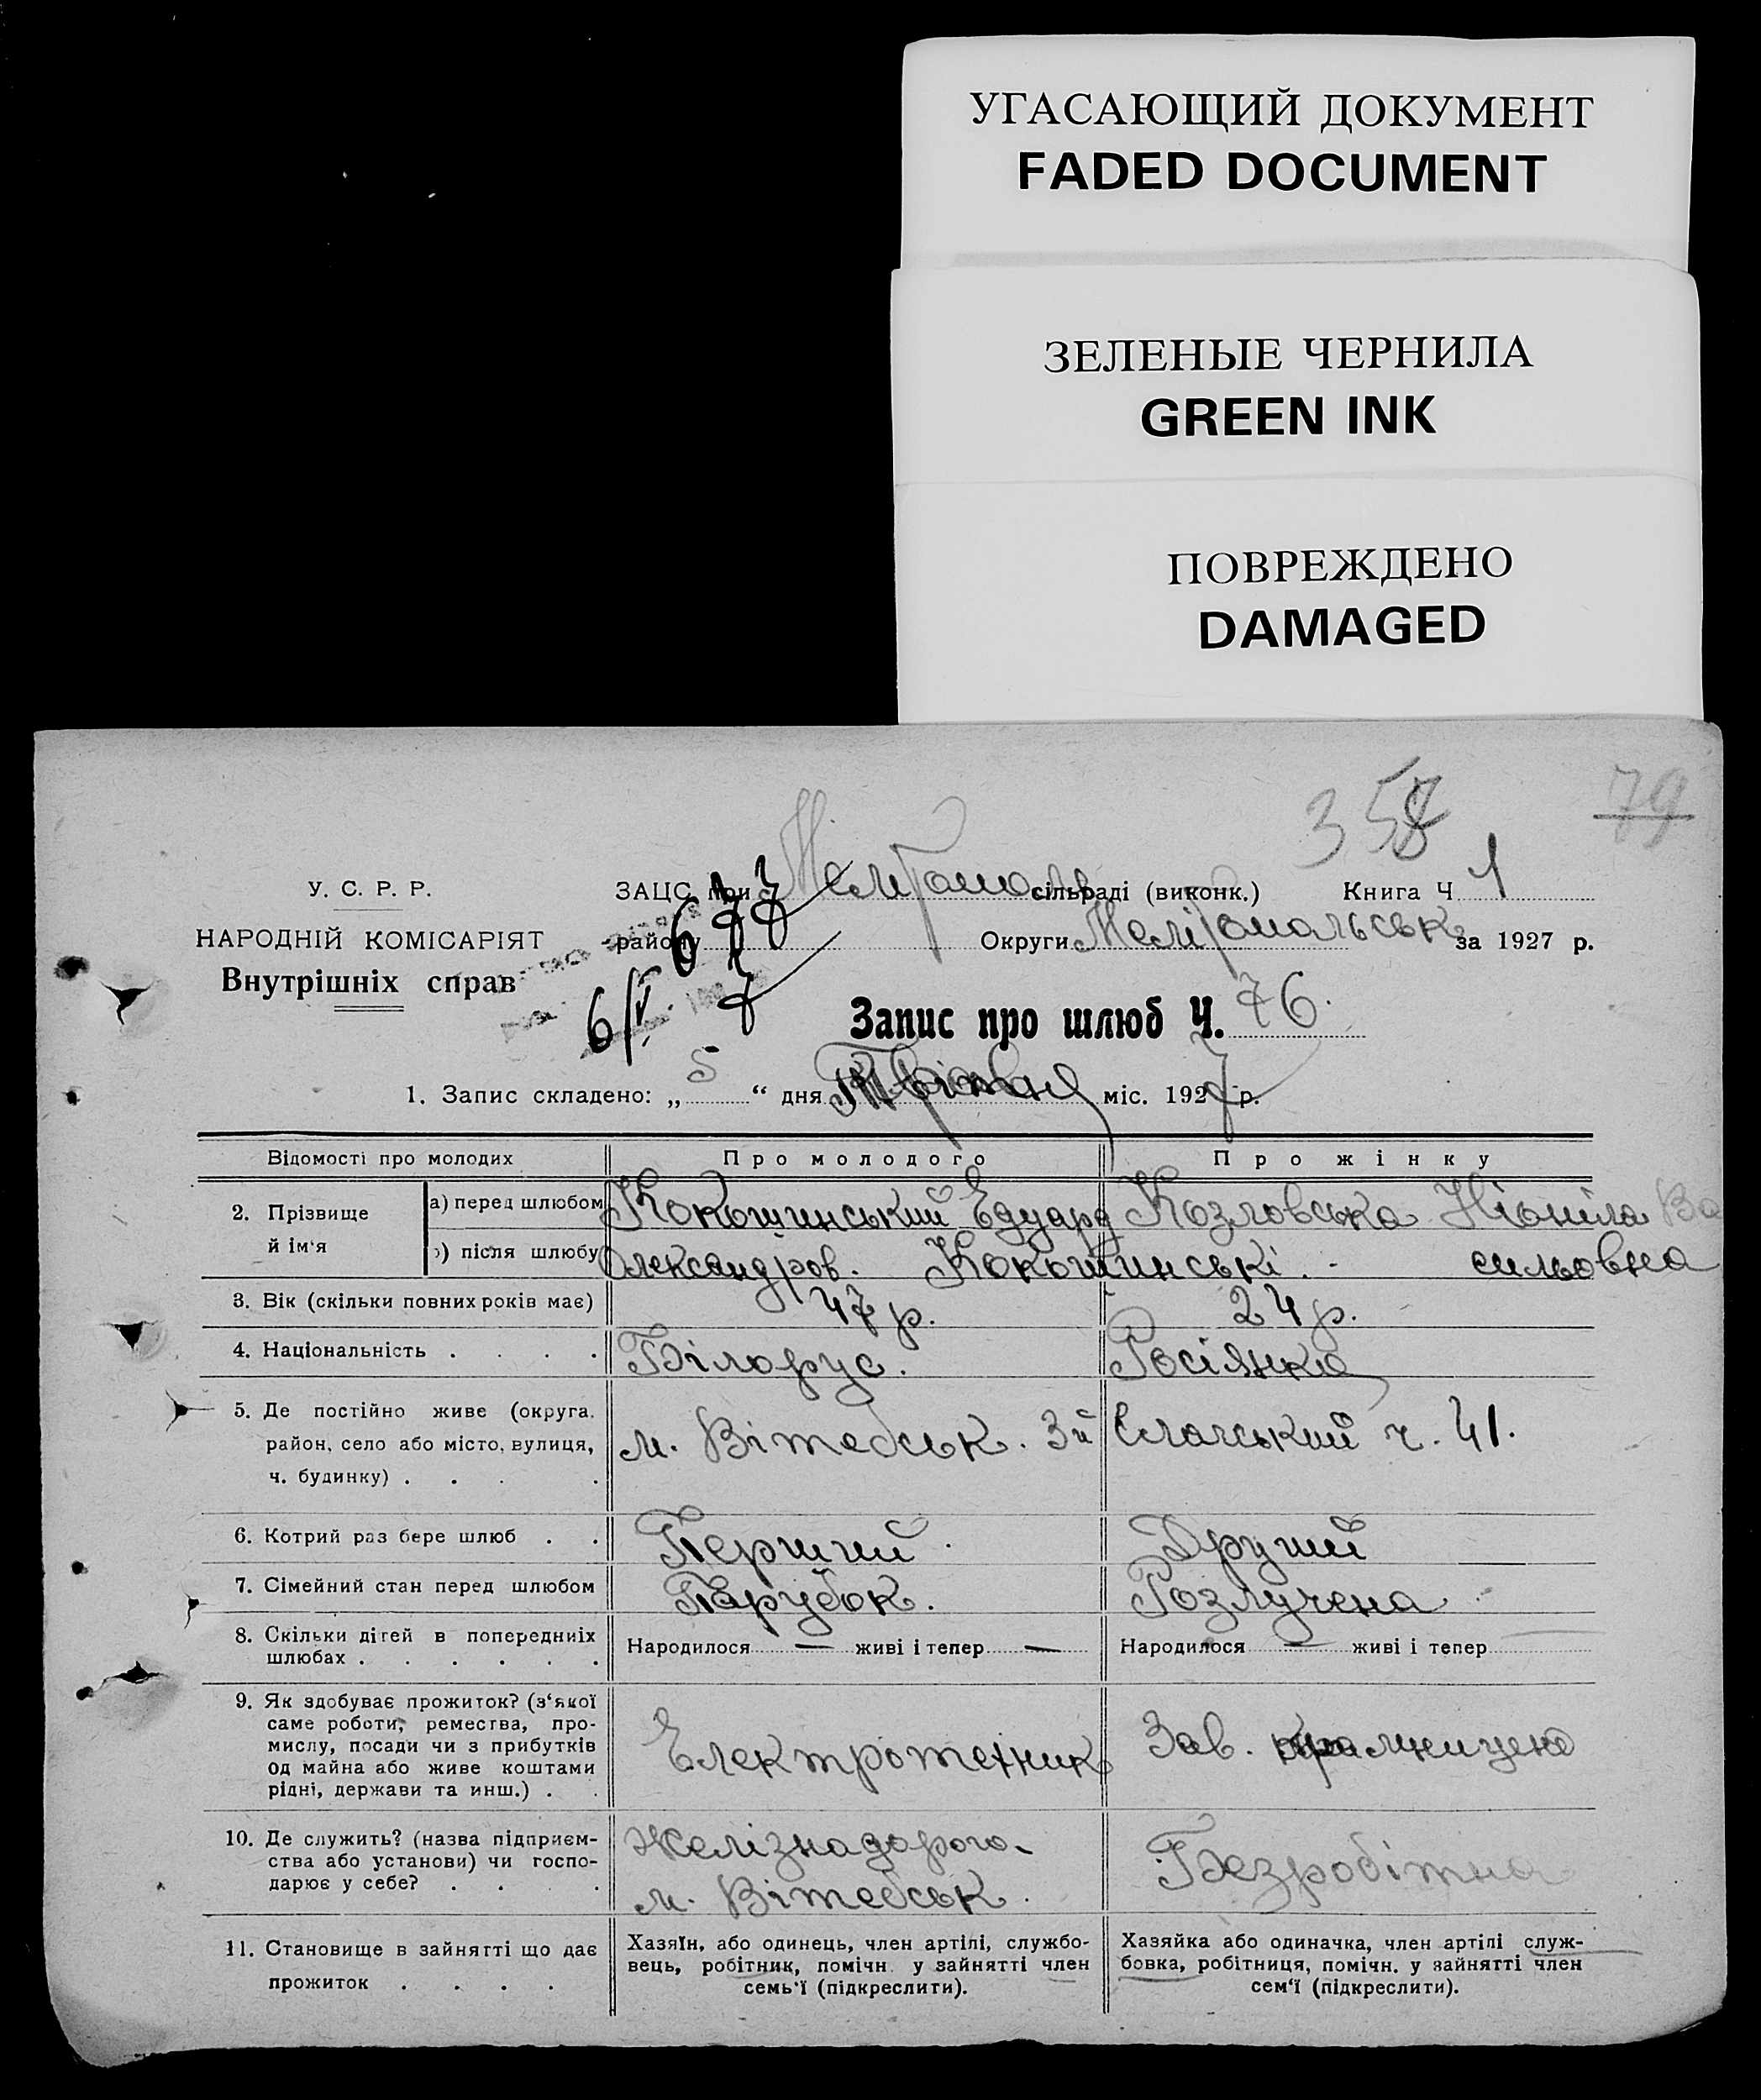 УГАСАЮЩИЙ ДОКУМЕНТ
FADED DOCUMENT
ЗЕЛЕНЫЕ ЧЕРНИЛА
GREEN INK
ПОВРЕЖДЕНО
DAMAGED
358 79
У. С. Р. Р.
ЗАЦС при сільраді (виконк.) Книга Ч 1
НАРОДНІЙ КОМІСАРІЯТ
району Округи Мелітопольськ за 1927 р.
Внутрішніх справ
Запис про шлюб Ч. 76.
1. Запис складено: „ 5 “ дня міс. 1927 р.
Відомості про молодих Про молодого Про жінку
2. Прізвище й ім‘я
а) перед шлюбом Кокошинський Едуард Козловська Ніоніла Ва
б) після шлюбу Олександров. Кокошинські. - сильовна
3. Вік (скільки повних років має) 47 р. 24 р.
4. Національність . . . . Білорус. Росіянка
5. Де постійно живе (округа,
район, село або місто, вулиця, м. Вітебськ. 3й ч. 41.
ч. будинку) . . . .
6. Котрий раз бере шлюб . . Перший. Другий
7. Сімейний стан перед шлюбом Парубок. Розлучена
8. Скільки дітей в попередніх
шлюбах . . . . . . Народилося — живі і тепер — Народилося — живі і тепер
9. Як здобуває прожиток? (з‘якої
саме роботи, ремества, про-
мислу, посади чи з прибутків Електротехник Зав. крамницею
од майна або живе коштами
рідні, держави та инш.) . .
10. Де служить? (назва підприєм- Желізна дорого-
ства або установи) чи госпо- Безробітна
дарює у себе? . . . . м. Вітебськ.
11. Становище в зайнятті що дає
прожиток . . . .
Хазяїн, або одинець, член артілі, службо-
вець, робітник, помічн. у зайнятті член
семь‘ї (підкреслити).
Хазяйка або одиначка, член артілі служ-
бовка, робітниця, помічн. у зайнятті член
сем‘ї (підкреслити).